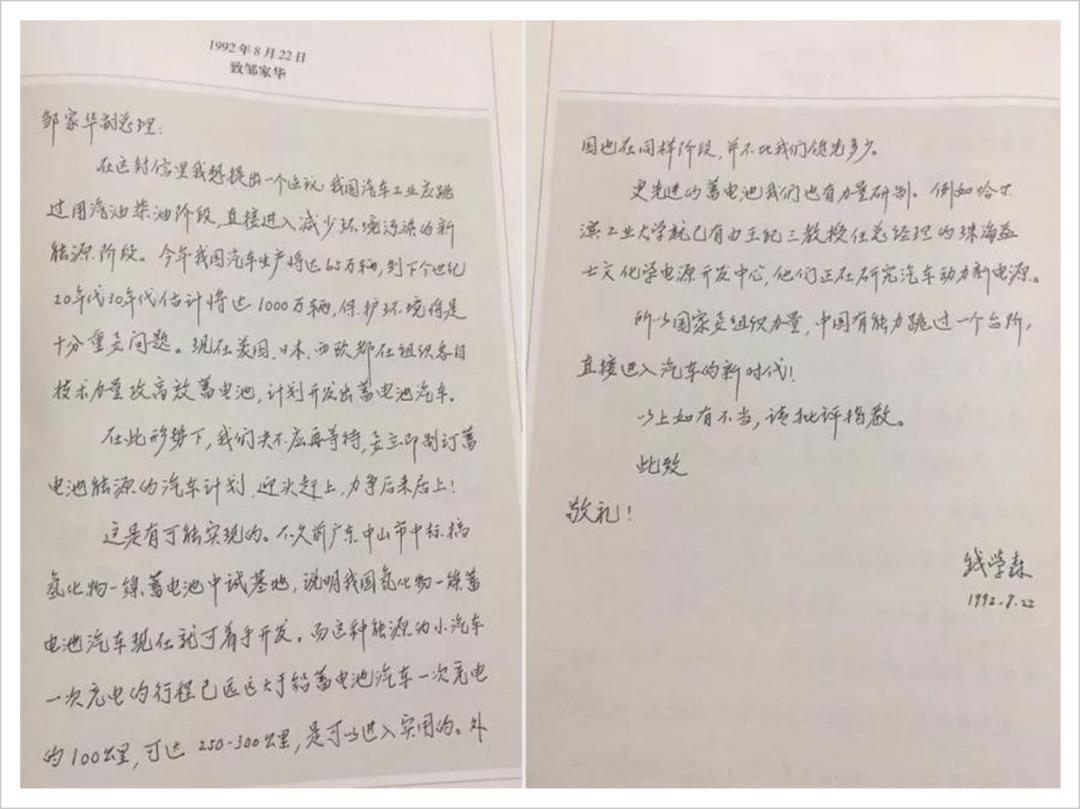 1992年8月22日
致邹家华
邹家华副总理：
在这封信里我想提出一个建议：我国汽车工业应跳
过用汽油柴油阶段，直接进入减少环境污染的新
能源阶段。今年我国汽车生产将达65万辆，到下个世纪
20年代30年代估计将达1000万辆，保护环境将是
十分重要问题。现在美国、日本、西欧都在组织各自
技术力量攻高效蓄电池，计划开发出蓄电池汽车。
在此形势下，我们决不应再等待，要立即制订蓄
电池能源的汽车计划，迎头赶上，力争后来居上！
这是有可能实现的。不久前广东中山市中标搞
氢化物—镍蓄电池中试基地，说明我国氢化物—镍蓄
电池汽车现在就可着手开发。而这种能源的小汽车
一次充电的行程已远远大于铅蓄电池汽车一次充电
的100公里，可达250-300公里，是可以进入实用的。外
国也在同样阶段，并不比我们领先多少。
更先进的蓄电池我们也有力量研制。例如哈尔
滨工业大学就已有由王纪三教授任总经理的珠海益
士文化学电源开发中心，他们正在研究汽车动力新电源。
所以国家要组织力量，中国有能力跳过一个台阶，
直接进入汽车的新时代！
以上如有不当，请批评指教。
此致
敬礼！
钱学森
1992.8.22